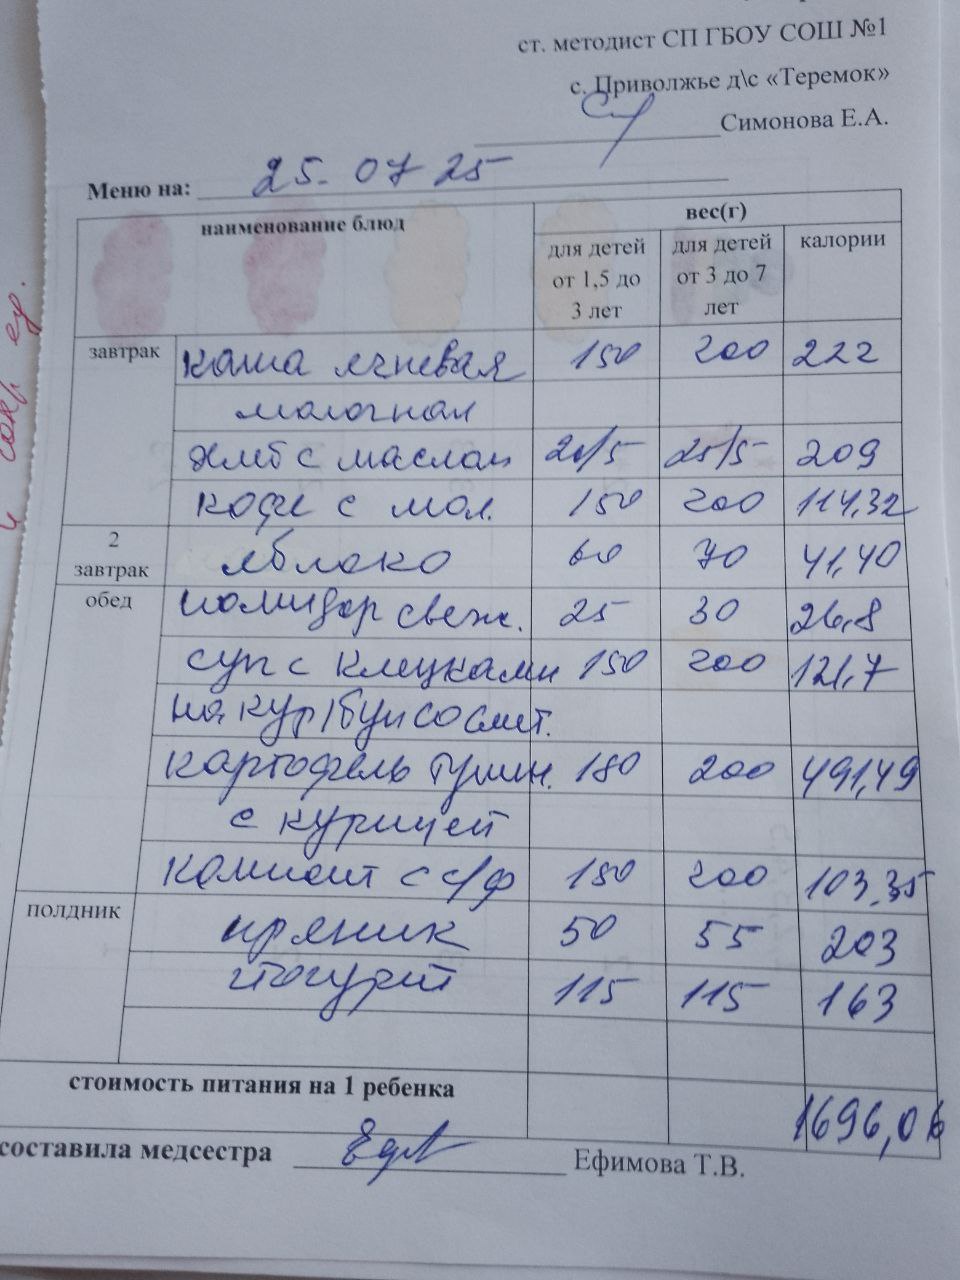 ст. методист СП ГБОУ СОШ №1
с. Приволжье д\с «Теремок»
Симонова Е.А.
Меню на: 25. 07 25
наименование блюд вес(г)
для детей от 1,5 до 3 лет для детей от 3 до 7 лет калории
завтрак каша ячневая 150 200 222
молочная
хлеб с маслом 20/5 25/5 209
кофе с мол. 150 200 114,32
2 завтрак яблоко 60 70 41,40
обед помидор свеж. 25 30 26,8
суп с клецками 150 200 121,7
на кур/бул со смет.
картофель тушен. 180 200 491,49
с курицей
компот с с/ф 180 200 103,35
полдник пряник 50 55 203
йогурт 115 115 163
стоимость питания на 1 ребенка 1696,06
составила медсестра Ефимова Т.В.